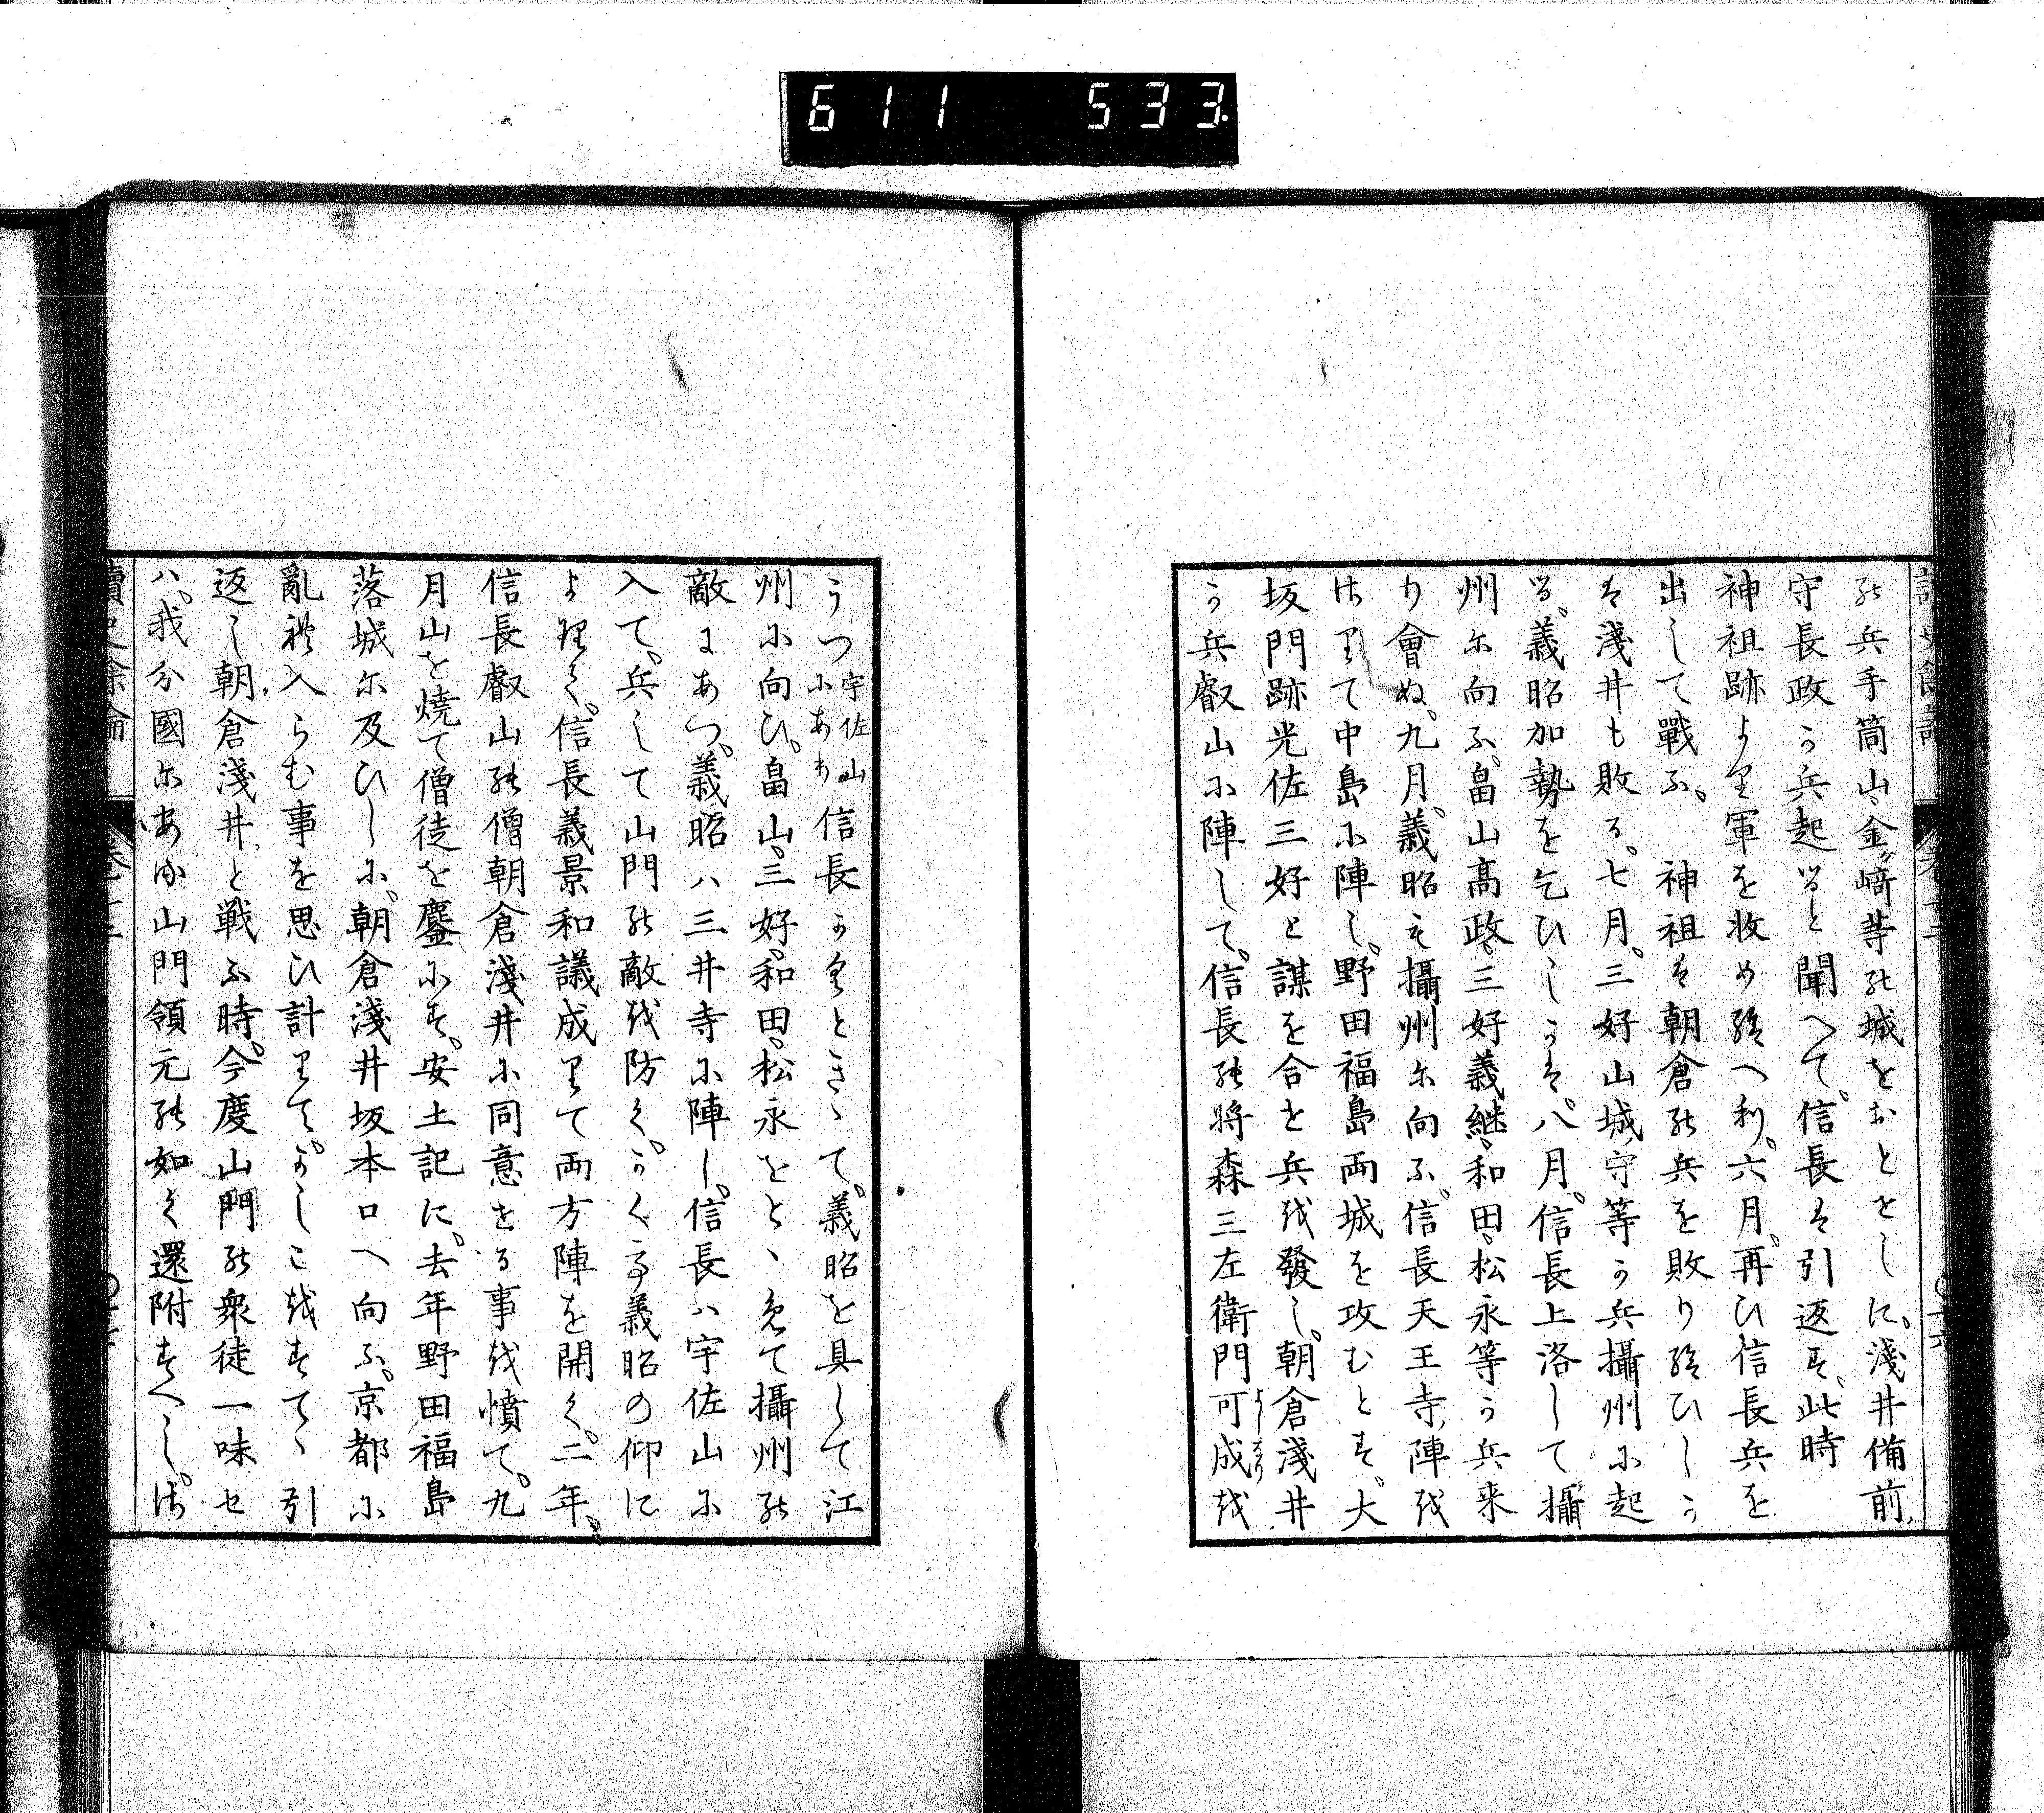 611 533.
の兵手筒山、金ヶ﨑等の城をおとせしに、淺井備前
守長政か兵起ると聞へて、信長は引返す、此時
神祖跡より軍を收め給へり、六月、再ひ信長兵を
出して戰ふ、神祖は朝倉の兵を敗り給ひしか
は淺井も敗る、七月、三好山城守等か兵攝州に起
る、義昭加勢を乞ひしかは、八月、信長上洛して攝
州に向ふ、畠山高政、三好義継、和田、松永等か兵来
り會ぬ、九月、義昭も攝州に向ふ、信長天王寺陣を
はりて中島に陣し、野田福島両城を攻むとす、大
坂門跡光佐三好と謀を合せ兵を發し、朝倉淺井
か兵叡山に陣して、信長の将森三左衛門可成を
よしなり
うつ宇佐山にあり信長かくときゝて、義昭を具して江
州に向ひ、畠山、三好、和田、松永をとゝめて攝州の
敵にあつ、義昭ハ三井寺に陣し、信長ハ宇佐山に
入て、兵して山門の敵を防く、かくて義昭の仰に
より、信長義景和議成りて両方陣を開く、二年、
信長叡山の僧朝倉淺井に同意せる事を憤て、九
月山を焼て僧徒を鏖にす、安土記に、去年野田福島
落城に及ひしに、朝倉淺井坂本口へ向ふ、京都に
亂れ入らむ事を思ひ計りて、かしこをすてゝ引
返し朝倉淺井と戦ふ時、今度山門の衆徒一味セ
ハ、我分國にある山門領元の如く還附すへし、は
讀史餘論